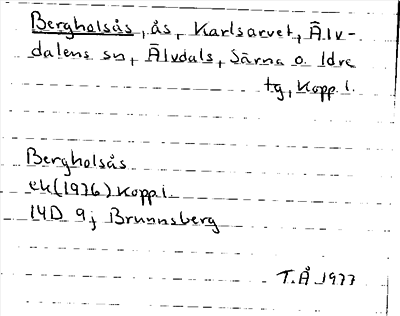 Bergholsås, ås, Karlsarvet, Älv-
dalens sn, Älvdals, Särna o. Idre
tg, Kopp.l.
Bergholsås
ek(1976) Kopp.l.
14D 9j Brunnsberg
T.Å 1977